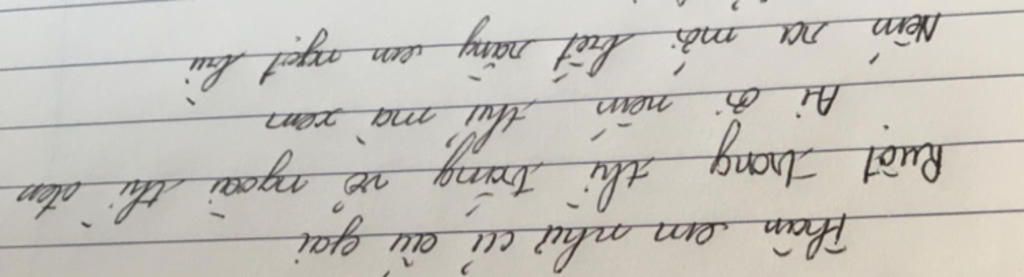 Thân em như củ ấu gai
Ruột trong thì trắng vỏ ngoài thì đen
Ai ơi nếm thử mà xem
Nếm ra mới biết rằng em ngọt bùi